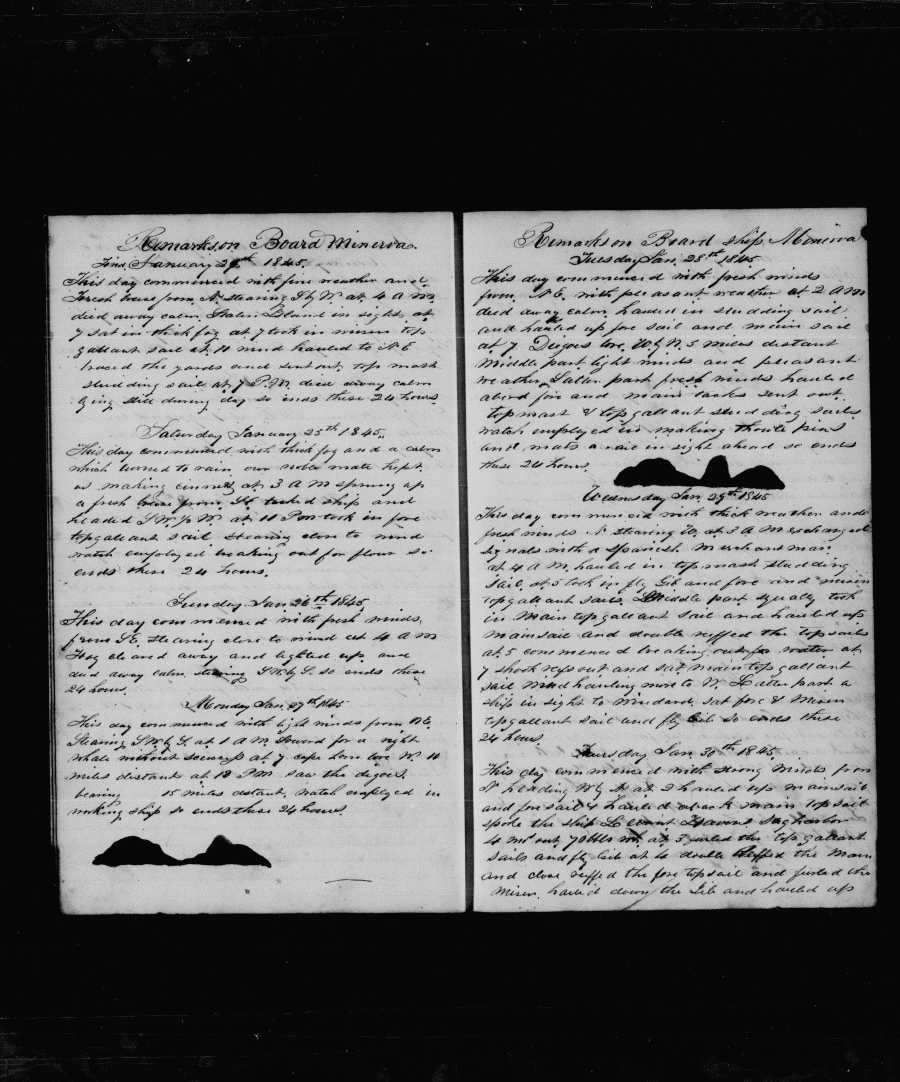 Remarks on Board Minerva.
January 24th 1845,
This day commenced with fine weather and
Fresh breeze from N stearing S by W. at. 4 A M
died away calm Staten Island in sight, at
7 sat in thick fog at 7 took in mizen top
gallant sail at 10 wind hauled to N E
braced the yards and sent out, top mast
studding sail at 7 P.M. died away calm
lying still during day so ends these 24 hours
Saturday January 25th 1845,,
This day commenced with thick fog and a calm
which turned to rain our mate kept
us making at 3 A M sprung up
a fresh breeze from tacked ship and
headed S W by W. at 10 took in fore
topgallant sail stearing close to wind
watch employed breaking out for flour so
ends these 24 hours.
Sunday Jan 26th 1845,
This day commenced with fresh winds,
from S E. stearing close to wind at 4 A M
Fog cleared away and lighted up, and
died away calm stearing S W by S. so ends these
24 hours.
Monday Jan. 27th 1845
This day commenced with light winds from N E.
Stearing S W by S. at 1 A M. lowerd for a right
whale without success at 7 cape horn bore W. 10
miles distant at 12 PM saw the degoes,
bearing 15 miles distant, watch employed in
working ship so ends these 24 hours.
Remarks on Board ship Minerva
Tuesday Jan, 28th 1845
This day commenced with fresh winds
from, N E. with pleasant weather at 2 A M
died away calm hauled in studding sail
and hauled up fore sail and main sail
at 7 Diegoes bore, W by N. 5 miles distant
Middle part light winds and pleasant
weather, Latter part fresh winds hauled
abord fore and main tacks sent out
topmast & topgallant studding sails
watch employed in making pins
and mats a sail in sight ahead so ends
these 24 hours,
Wednesday Jan, 29th 1845
This day commenced with thick weather and
fresh winds N stearing W, at 3 A M exchanged
signals with a Spanish Merchantman
at 4 A M, hauled in topmast studding
sail, at 5 took in fly Gib and fore and mizen
topgallant sails. Middle part squally took
in Main topgallant sail and hauled up
mainsail and double reffed the topsails
at, 5 commenced breaking out for water at
7 shook refs out and sat Main top gallant
sail Wind hauling more to N. Latter part a
ship in sight to windard, sat fore & Mizen
topgallant sail and fly Gib so ends these
24 hours
Thursday Jan. 30th 1845,
This day commenced with strong Winds from
N heading W by at 2 hauled up mainsail
and foresail & hauled aback main topsail
spoke the ship Levant Havens Sagharbor
4 ms out 70 bbls at, 3 furled the top gallant
sails and fly Gib at 4 double reffed the Main
and close reffed the fore topsail and furled the
Mizen hauled down the Gib and hauled up